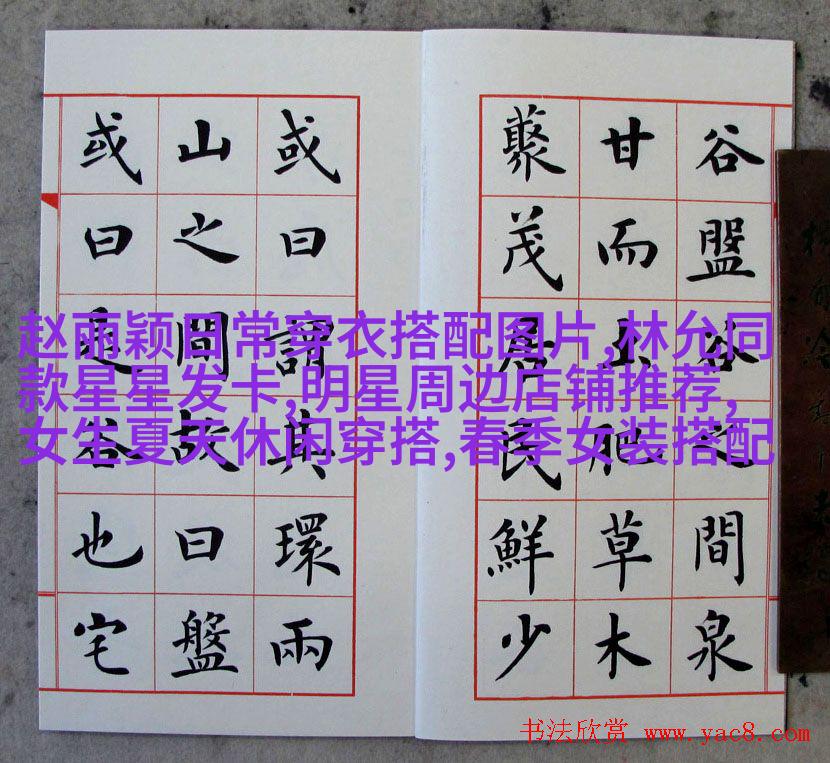 谷盤谷之間泉
甘而土肥草木
藂茂居民鮮少
或曰謂其環兩
山之間故曰盤
或曰是谷也宅
赵丽颖日常穿衣搭配图片,林允同
款星星发卡,明星周边店铺推荐,
女生夏天休闲穿搭,春季女装搭配
书法欣赏 www.yac8.com